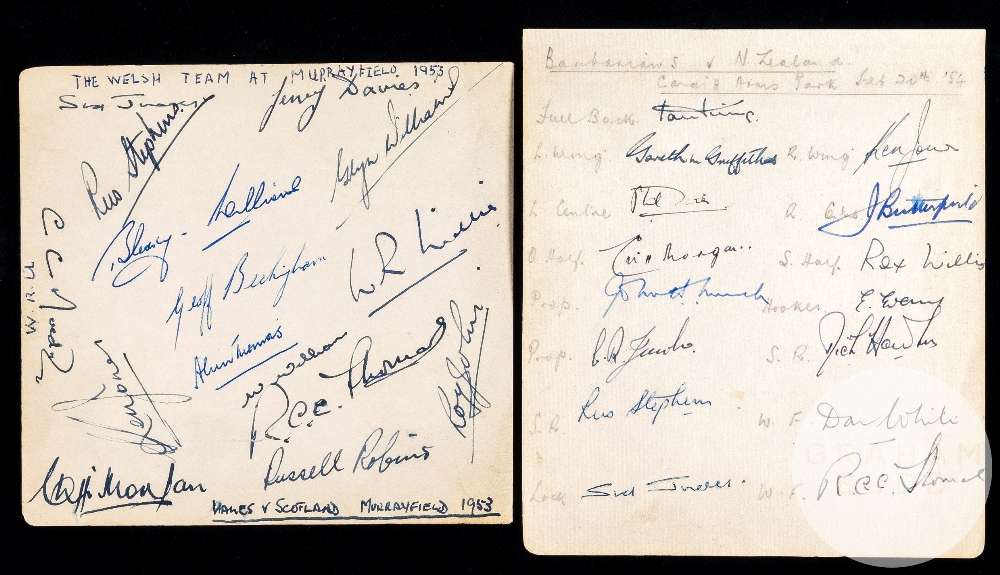 THE WELSH TEAM AT MURRAYFIELD. 1953
Terry Davies
Rees Stephens
Glyn Williams
Bleddyn Williams
W.R.U
Geoff Beckingham
W R Willis
Alun Thomas
W. Williams
R.C.C. Thomas
Roy John
Ken Jones
Russell Robins
Cliff Morgan
WALES V SCOTLAND MURRAYFIELD 1953
Barbarians v N. Zealand
Cardiff Arms Park Feb 20th '54
Full Back Ian King.
L. Wing Gareth M Griffiths R. Wing Ken Jones
L Centre R. J Butterfield
O Half. Cliff Morgan. S. Half. Rex Willis
Prop. Hooker E. Evans
Prop. C. R. Jacobs. S. R.
S. R. Rees Stephens W. F. Don White
Lock Sid Judd. W. F. R CC. Thomas